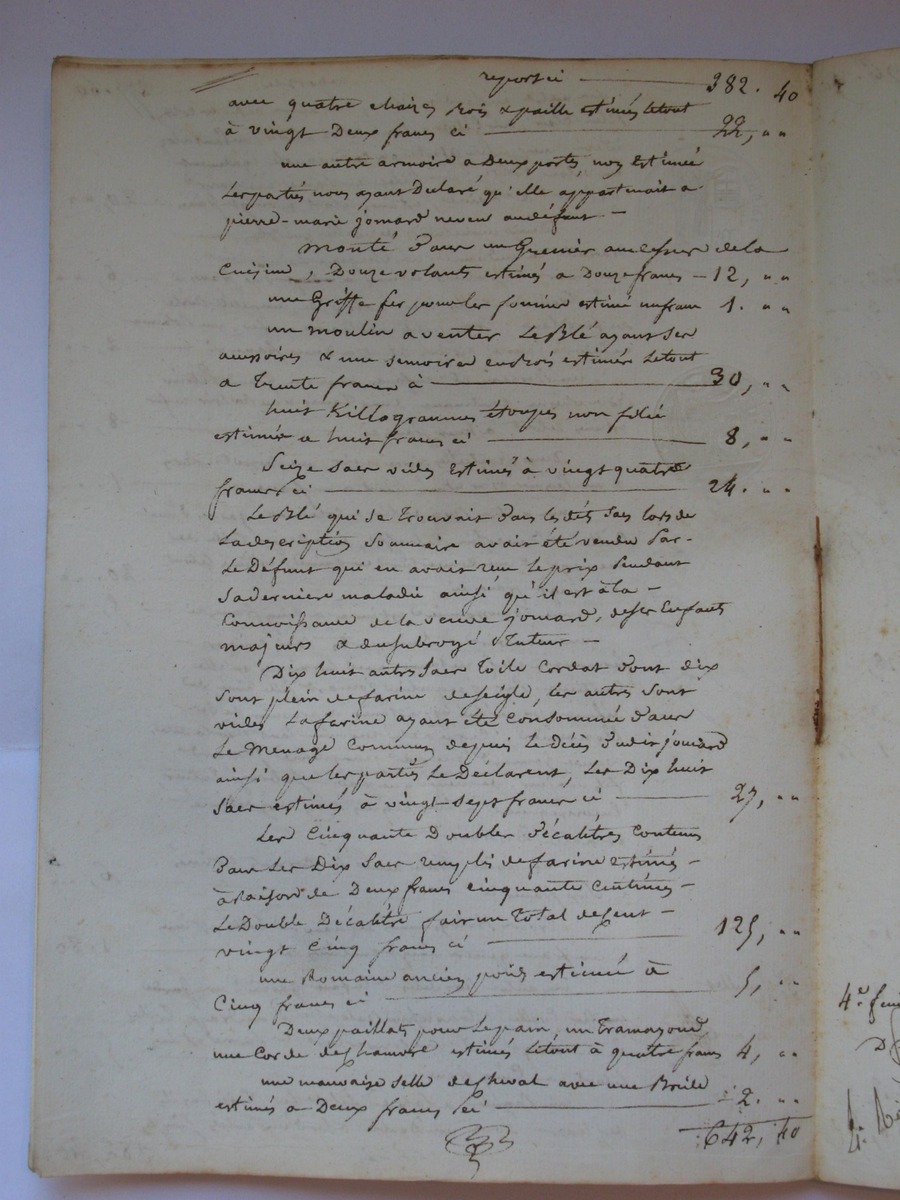 report ci 382. 40
avec quatre chaizes Bois & paille estimés letout
à vingt Deux francs ci 22, " "
une autre armoire a Deux portes, non Estimée
Les parties nous ayant Declaré qu'elle appartenait a
pierre-marie jomard neveu audéfunt —
Monté dans un Grenier audessus dela
Cuisine, Douze volants estimés a Douze francs — 12, " "
une Griffe fer pour les fumier estimé unfranc 1. " "
un moulin a venter Le Blé ayant Ses
accessoires & une semoire en Bois estimés Letout
a Trente francs ci 30, " "
huit Killogrammes étoupes non filée
estimés a huit francs ci 8, " "
Seize Sacs vides Estimés à vingt quatre
francs Ci 24. " "
Le Blé qui se Trouvait dans les dits Sacs lors de
La description Sommaire avait été vendu Par -
Le Défunt qui en avait recu le prix Pendant
Sa derniere maladie ainsi qu'il est àla -
Connoissance de la veuve jomard, de ses Enfants
majeurs & du subrogé Tuteur —
Dix huit autres Sacs Toile Cordat dont dix
Sont plein de farine de Seigle, les autres Sont
vides La farine ayant été Consommée dans
Le Menage Commun depuis le Décès dudit jomard
ainsi que les parties Le Déclarent, Les Dix huit
Sacs estimés à vingt Sept francs ci 27, " "
Les Cinquante Doubles Décalitres Contenus
Dans Les Dix Sacs remplis de farine estimés -
à Raison de Deux francs cinquante Centimes -
Le Double Décalitre fait un Total de Cent -
vingt Cinq francs ci 125, " "
une Romaine ancien poids estimée à
Cinq francs ci 5, " "
Deux paillats pour Le pain, un
une Corde de Chanvre estimés Letout à quatre francs 4, " "
une mauvaise Selle de Cheval avec une Bride
estimés a Deux francs Ci 2. " "
642, 40
4e feui